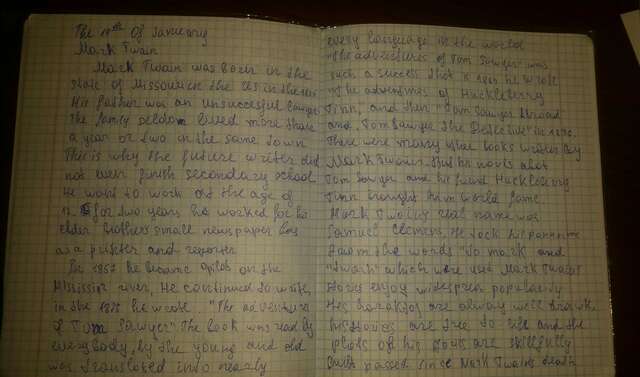 The 19th of January
Mark Twain
Mark Twain was born in the
state of Missouri in the in the
His father was an unsuccessful lawyer
The family seldom lived more than
a year or two in the same town
This is why the future writer did
not even finish secondary school
He went to work at the age of
12. for two years he worked for his
elder brothers small newspaper
as a printer and reporter
In 1857 he became a pilot on the
Mississipi river, He continued to write,
in the 1876 he wrote "The adventures
of Tom Sawyer" The book was read by
everybody, by the young and old
was translated into nearly
every language in the world
"The adventures of Tom Sawyer" was
such a success that he wrote
"The adventures of Huckleberry
Finn, and then "Tom Sawyer Abroad
and "Tom Sawyer the Detective" in
There were many other books written by
Mark Twain. But his novels about
Tom Sawyer and his friend Huckleberry
Finn brought him world fame
Mark Twains real name was
Samuel Clemens, He took his
from the words "to mark and
"twain" which were Mark Twains
enjoy widespread popularity
His are always well drawn,
his stories are true to life and the
plots of his are skillfully
passed since Mark Twains death